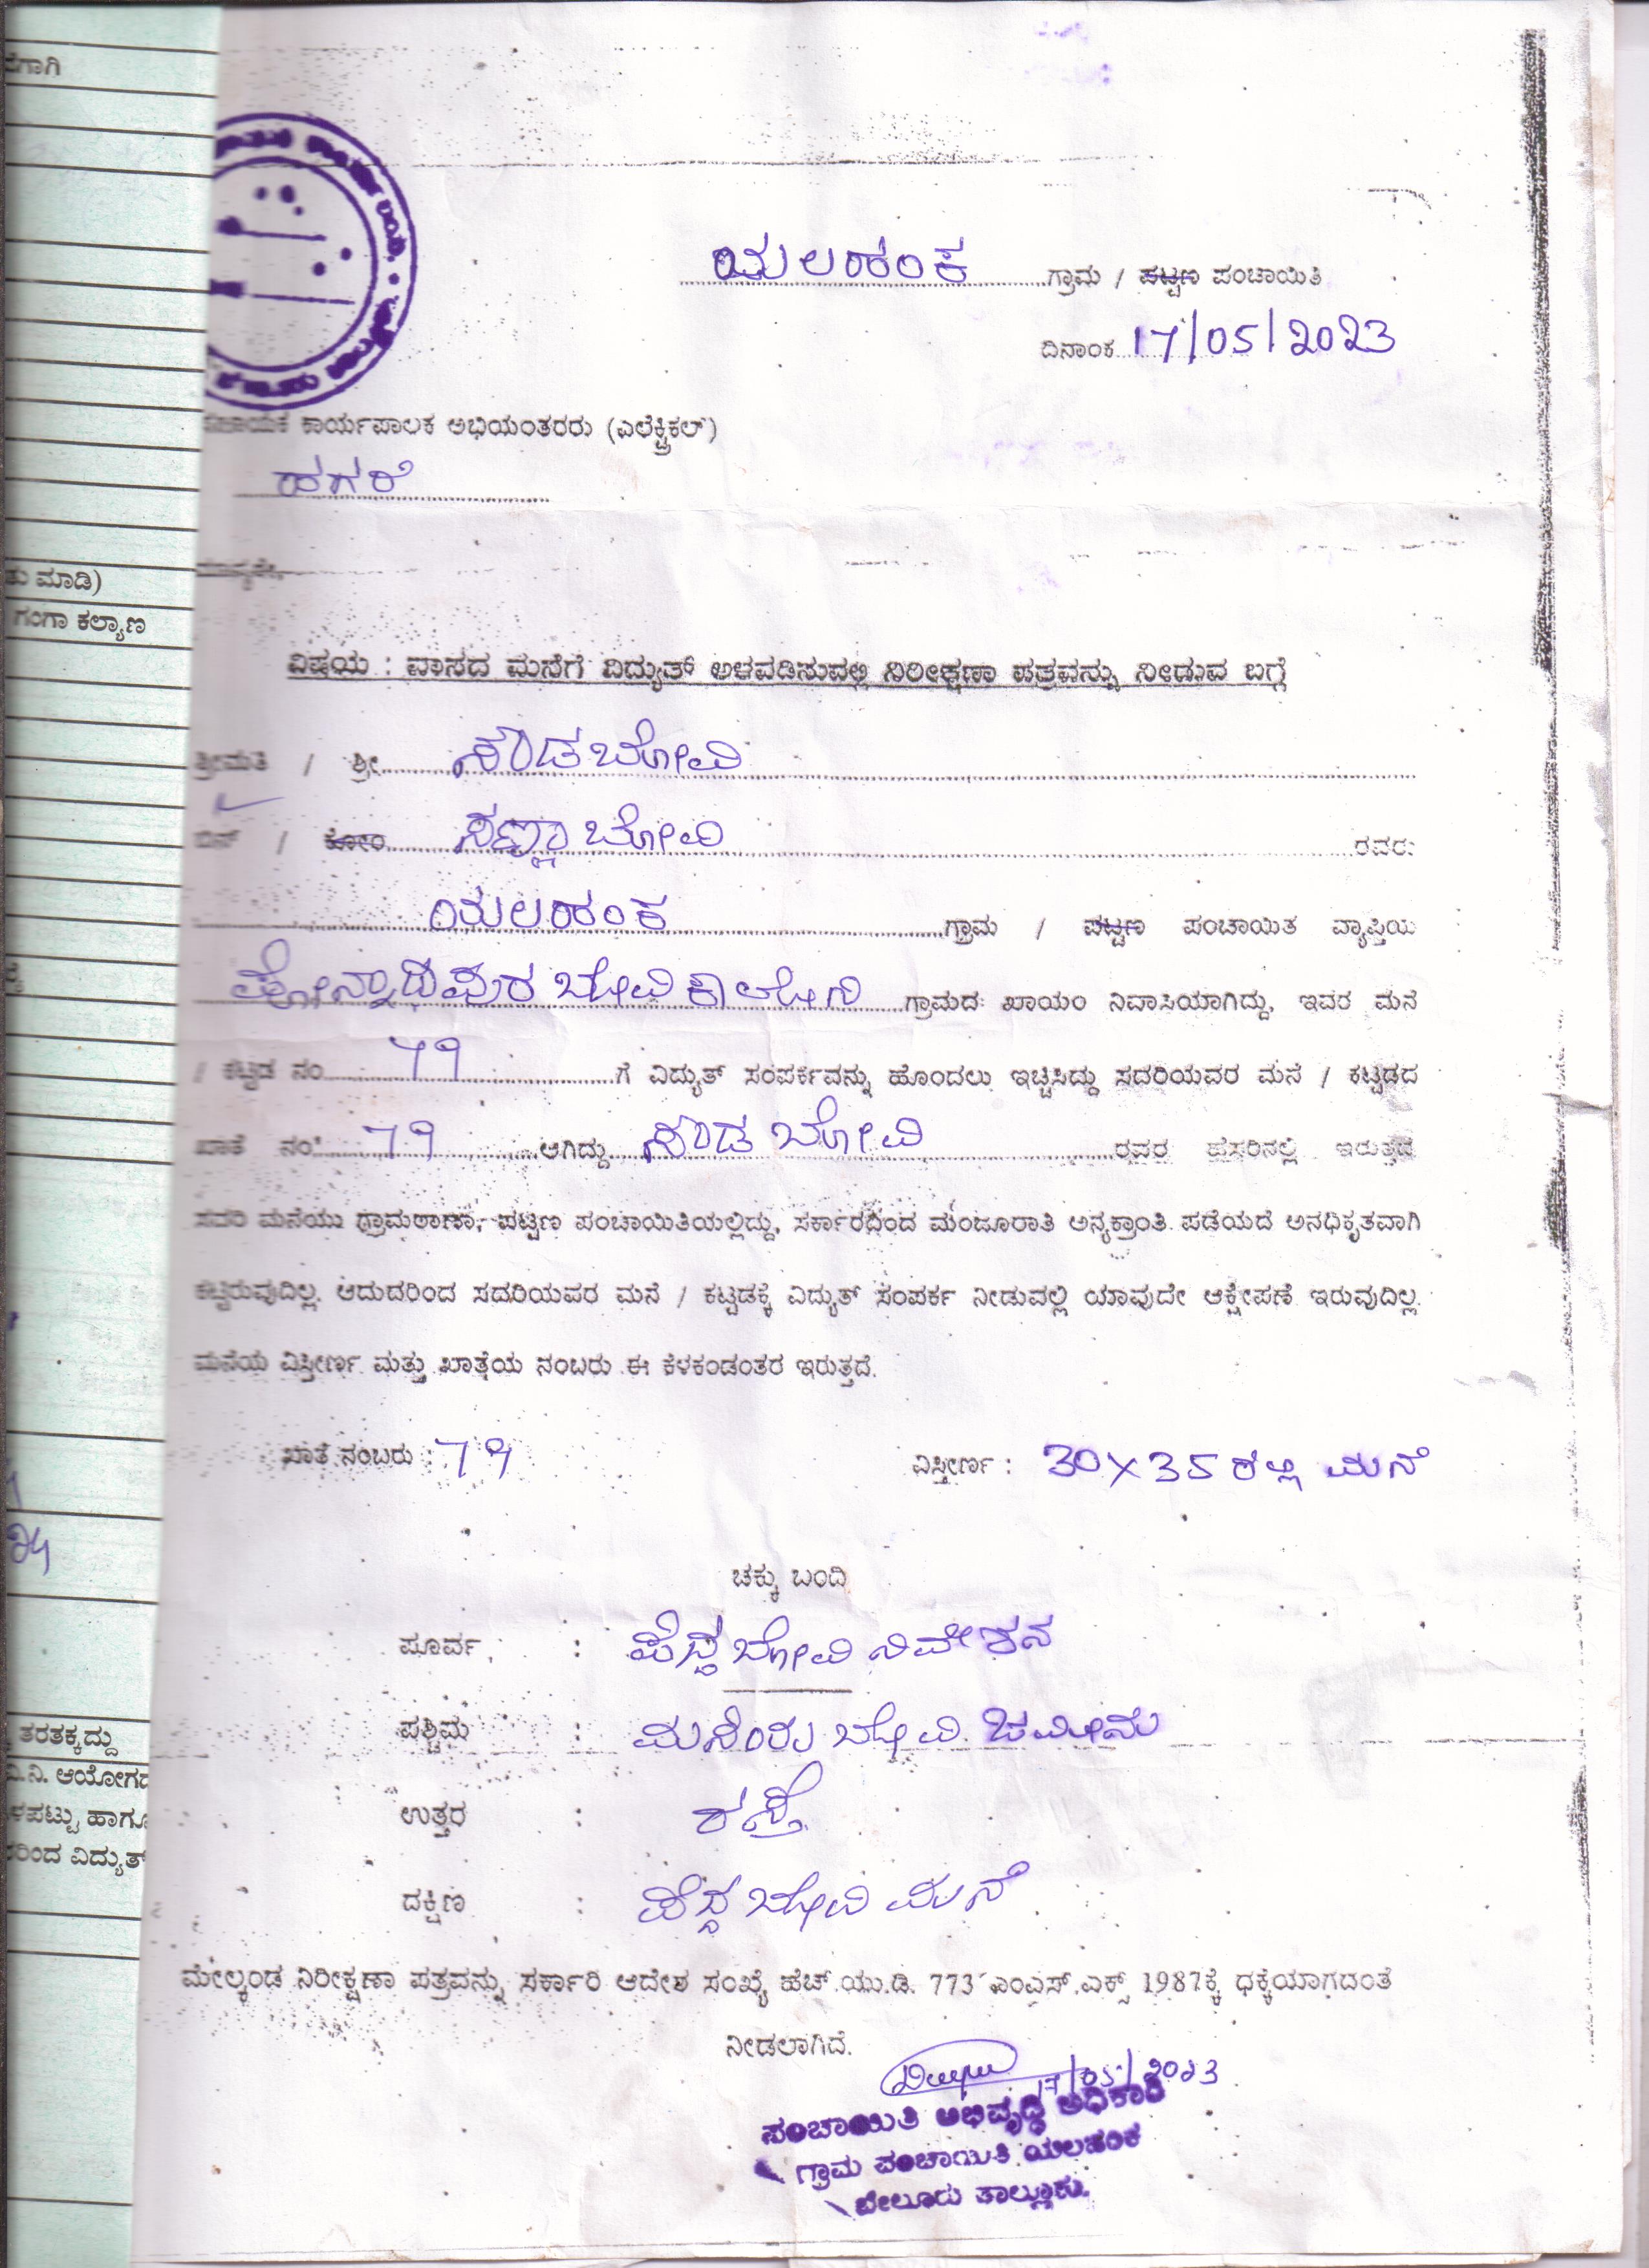 ಯಲಹಂಕ ಗ್ರಾಮ / ಪಟ್ಟಣ ಪಂಚಾಯಿತಿ
ದಿನಾಂಕ 17/05/2023
ಸಹಾಯಕ ಕಾರ್ಯಪಾಲಕ ಅಭಿಯಂತರರು (ಎಲೆಕ್ಟ್ರಿಕಲ್)
ಹಗರೆ
ಮಾನ್ಯರೇ,
ವಿಷಯ : ವಾಸದ ಮನೆಗೆ ವಿದ್ಯುತ್ ಅಳವಡಿಸುವಲ್ಲಿ ನಿರೀಕ್ಷಣಾ ಪತ್ರವನ್ನು ನೀಡುವ ಬಗ್ಗೆ
ಶ್ರೀಮತಿ / ಶ್ರೀ ಗೌಡಬೋವಿ
ಬಿನ್ / ಕೋಂ ಸಣ್ಣಾಬೋವಿ ರವರು
ಯಲಹಂಕ ಗ್ರಾಮ / ಪಟ್ಟಣ ಪಂಚಾಯಿತ ವ್ಯಾಪ್ತಿಯ
ಬೋವಿ ಕಾಲೋನಿ ಗ್ರಾಮದ ಖಾಯಂ ನಿವಾಸಿಯಾಗಿದ್ದು, ಇವರ ಮನೆ
/ ಕಟ್ಟಡ ನಂ 79 ಗೆ ವಿದ್ಯುತ್ ಸಂಪರ್ಕವನ್ನು ಹೊಂದಲು ಇಚ್ಚಿಸಿದ್ದು ಸದರಿಯವರ ಮನೆ / ಕಟ್ಟಡದ
ಖಾತೆ ನಂ 79 ಆಗಿದ್ದು ಗೌಡ ಬೋವಿ ರವರ ಹೆಸರಿನಲ್ಲಿ ಇರುತ್ತದೆ
ಸದರಿ ಮನೆಯು ಗ್ರಾಮಠಾಣಾ, ಪಟ್ಟಣ ಪಂಚಾಯಿತಿಯಲ್ಲಿದ್ದು, ಸರ್ಕಾರದಿಂದ ಮಂಜೂರಾತಿ ಅನ್ಯಕ್ರಾಂತಿ ಪಡೆಯದೆ ಅನಧಿಕೃತವಾಗಿ
ಕಟ್ಟಿರುವುದಿಲ್ಲ. ಆದುದರಿಂದ ಸದರಿಯವರ ಮನೆ / ಕಟ್ಟಡಕ್ಕೆ ವಿದ್ಯುತ್ ಸಂಪರ್ಕ ನೀಡುವಲ್ಲಿ ಯಾವುದೇ ಆಕ್ಷೇಪಣೆ ಇರುವುದಿಲ್ಲ.
ಮನೆಯ ವಿಸ್ತೀರ್ಣ ಮತ್ತು ಖಾತೆಯ ನಂಬರು ಈ ಕೆಳಕಂಡಂತರ ಇರುತ್ತದೆ.
ಖಾತೆ ನಂಬರು : 79 ವಿಸ್ತೀರ್ಣ : 30X35 ರಲ್ಲಿ ಮನೆ
ಚಕ್ಕು ಬಂದಿ
ಪೂರ್ವ : ಪೆದ್ದ ಬೋವಿ ನಿವೇಶನ
ಪಶ್ಚಿಮ : ಬೋವಿ ಜಮೀನು
ಉತ್ತರ : ರಸ್ತೆ
ದಕ್ಷಿಣ : ಪೆದ್ದ ಬೋವಿ ಮನೆ
ಮೇಲ್ಕಂಡ ನಿರೀಕ್ಷಣಾ ಪತ್ರವನ್ನು ಸರ್ಕಾರಿ ಆದೇಶ ಸಂಖ್ಯೆ ಹೆಚ್.ಯು.ಡಿ. 773 ಎಂಎಸ್.ಎಕ್ಸ್ 1987ಕ್ಕೆ ಧಕ್ಕೆಯಾಗದಂತೆ
ನೀಡಲಾಗಿದೆ.
17/05/2023
ಪಂಚಾಯಿತಿ ಅಭಿವೃದ್ಧಿ ಅಧಿಕಾರಿ
ಗ್ರಾಮ ಪಂಚಾಯಿತಿ ಯಲಹಂಕ
ಬೇಲೂರು ತಾಲ್ಲೂಕು.
ಮಾಡಿ)
ಗಂಗಾ ಕಲ್ಯಾಣ
ತರತಕ್ಕದ್ದು
ವಿ.ನಿ. ಆಯೋಗದ
ವಿದ್ಯುತ್